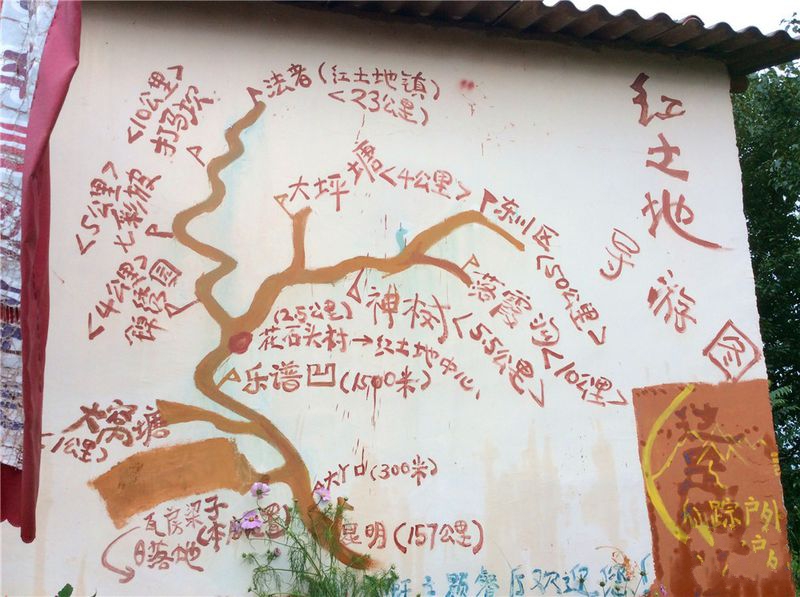 红土地
导游图
法者(红土地镇)
<23公里>
<10公里>
打马坎
<5公里>
七彩坡
<4公里>
锦绣园
大坪塘<4公里>
东川区<50公里>
落霞沟<10公里>
神树<5.5公里>
(2.5公里)
花石头村→红土地中心
乐谱凹(1500米)
大窝塘
1公里>
大丫口(300米)
瓦房梁子
日落地
昆明(157公里)
仙踪户外
户
主题餐厅欢迎您